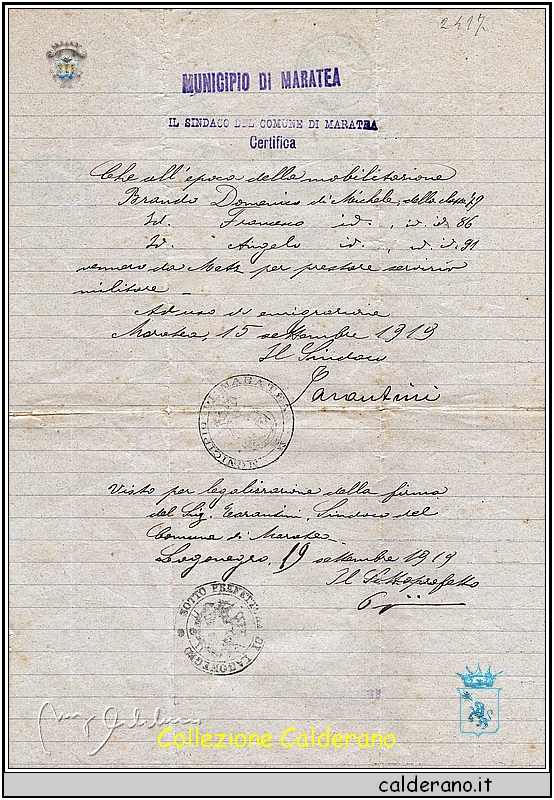 2417
MUNICIPIO DI MARATEA
IL SINDACO DEL COMUNE DI MARATEA
Certifica
Che all'epoca della mobilitazione
Brando Domenico di Michele, della classe 79
Id. Francesco id. , id. id. 86
Id. Angelo id. , id. id. 91
vennero da Metz per prestare servizio
militare _
Ad uso di emigrazione
Maratea, 15 settembre 1919
Il Sindaco
Tarantini
MUNICIPIO DI MARATEA
Visto per legalizzazione della firma
del Sig. Tarantini, Sindaco del
Comune di Maratea
Lagonegro, 19 settembre 1919
Il Sottoprefetto
SOTTO PREFETTURA DI LAGONEGRO
Collezione Calderano
calderano.it